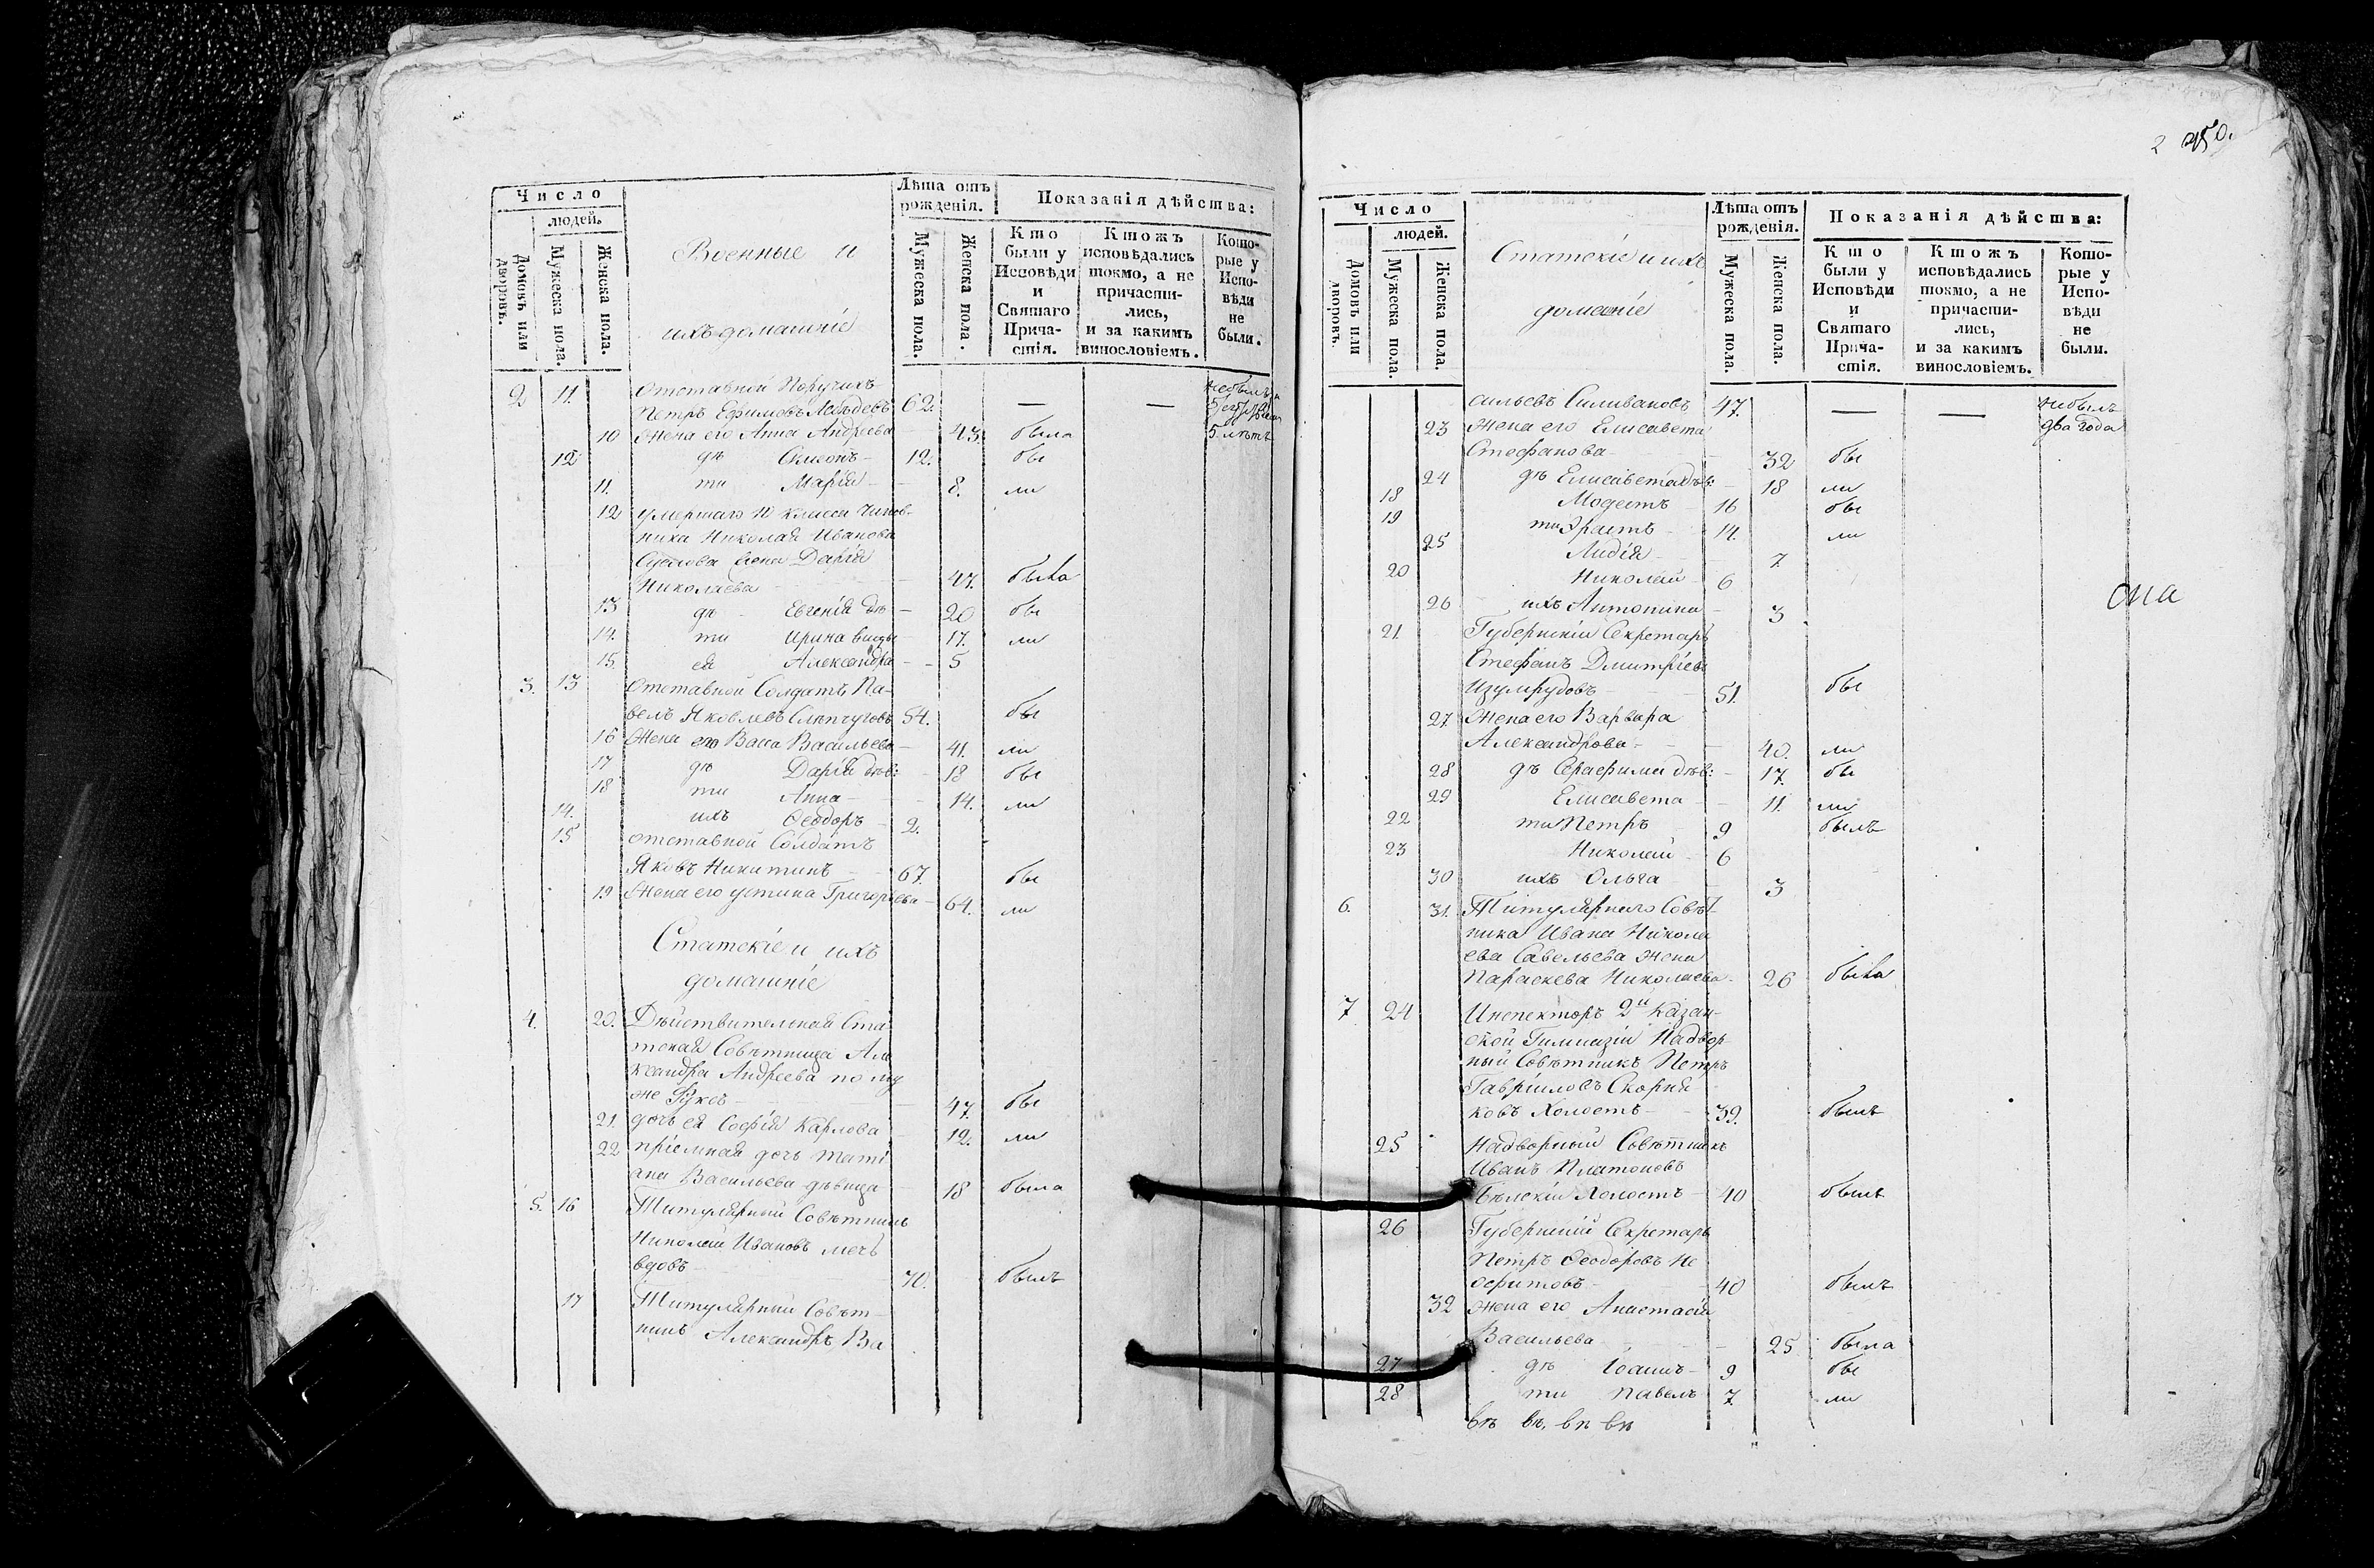 Число
людей.
Домовъ или дворовъ.
Мужеска пола.
Женска пола.
Военные и
ихъ домашніе
Лѣта отъ рожденія.
Мужеска пола.
Женска пола.
Показанія дѣйства:
Кто были у Исповѣди и Святаго Прича-стія.
Ктожъ исповѣдались токмо, а не причасти-лись, и за какимъ винословіемъ.
Кото-рые у Испо-вѣди не были.
2 11 Отставной Поручикъ небылъ
Петръ Ефимовъ Лебедевъ 62. — —
10 Жена его Анна Андреева 43. была 5 лѣтъ
12 дѣ Симеонъ 12. бы
11. ти Марія 8. ли
12 умершаго 10 класса чинов-
ника Николая Иванова
жена Дарія
Николаева 47. была
13 дѣ Евгенія дѣ 20 бы
14. ти Ирина 17. ли
15. ея Александра 5
3. 13 Отставной Солдатъ Па-
велъ Яковлевъ 54. бы
16 Жена его Васса Васильева 41. ли
17 дѣ Дарія дѣв: 18 бы
18 ти Анна 14. ли
14. ихъ Ѳеодоръ 2.
15 отставной Солдатъ
Яковъ Никитинъ 67. бы
19 Жена его Устина Григорьева 64. ли
Статскіе и ихъ
домашніе
4. 20. Дѣйствительная Ста-
тская Совѣтница Але
ксандра Андреева по му
же Фуксъ 47. бы
21. дочь ея Софія Карлова 12. ли
22 пріемная дочь Тати
ана Васильева дѣвица 18 была
5. 16 Титулярный Совѣтникъ
Николай Ивановъ
вдовъ 70. былъ
17 Титулярный Совѣт-
никъ Александръ Ва
2 250.
Число
людей.
Домовъ или дворовъ.
Мужеска пола.
Женска пола.
Статскіе и ихъ
домашніе
Лѣта отъ рожденія.
Мужеска пола.
Женска пола.
Показанія дѣйства:
Кто были у Исповѣди и Святаго Прича-стія.
Ктожъ исповѣдались токмо, а не причасти-лись, и за какимъ винословіемъ.
Кото-рые у Испо-вѣди не были.
сильевъ Силивановъ 47. — — небылъ
23 Жена его Елисавета два года
Стефанова 32 бы
24 дѣ Елисавета дѣв: 18 ли
18 Модестъ 16 бы
19 ти Эрастъ 14. ли
25 Лидія 7.
20 Николай 6
26 ихъ Антонина 3
21. Губернскій Секретарь
Стефанъ Дмитріевъ
Изумрудовъ 51. бы
27 Жена его Варвара
Александрова 40. ли
28 дѣ Серафима дѣв: 17. бы
29 Елисавета 11. ли
22 ти Петръ 9 былъ
23 Николай 6
30 ихъ Ольга 3
6. 31. Титулярнаго Совѣт-
ника Ивана Никола
ева Савельева жена
Параскева Николаева 26 была
7 24 Инспекторъ 2й Казан-
ской Гимназіи Надвор-
ный Совѣтникъ Петръ
Гавріиловъ Скорня
ковъ Холостъ 39. былъ
25 Надворный Совѣтникъ
Иванъ Платоновъ
Бѣлскій Холостъ 40 былъ
26 Губернскій Секретарь
Петръ Ѳеодоровъ Не
офитовъ 40 былъ
32 Жена его Анастасія
Васильева 25 была
27 дѣ Іоаннъ 9 бы
28 ти Павелъ 7 ли